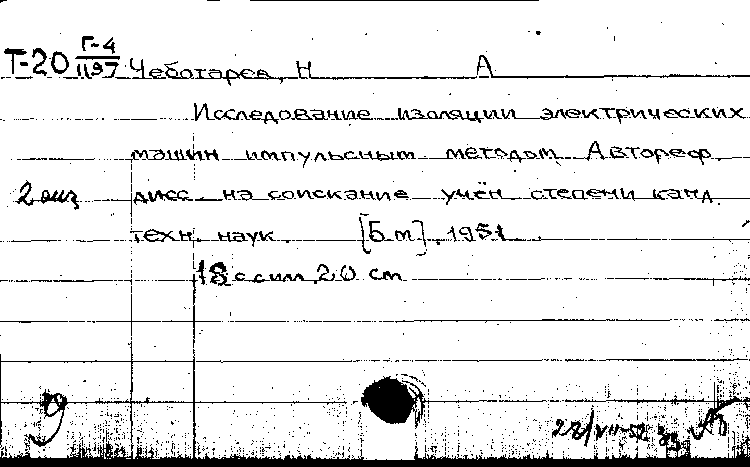 Т-20 Г-4/1197 Чеботарев, Н А
Исследование изоляции электрических
машин импульсным методом. Автореф.
2 экз дисс. на соискание учён степени канд.
техн. наук. [Б.м]. 1951.
18 с сил. 20 см
28/VII-52